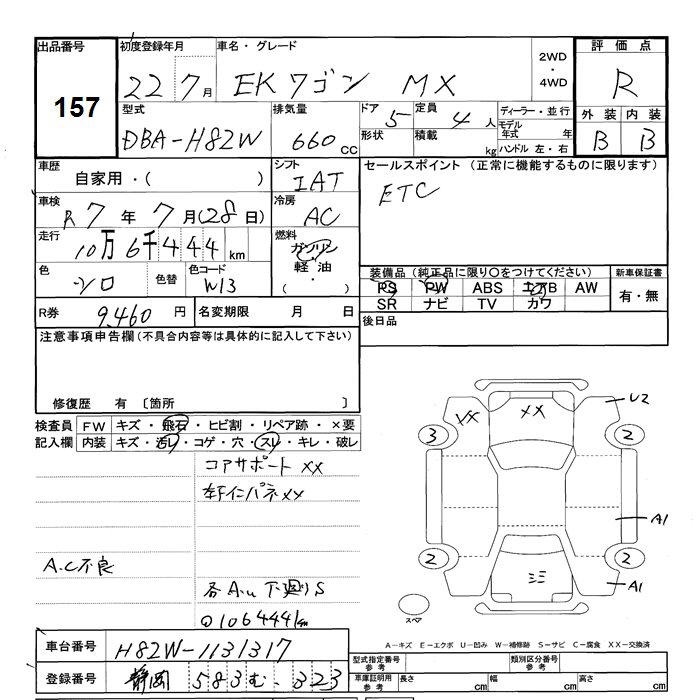 出品番号
157
初度登録年月
22 7月
車名・グレード
EKワゴン MX
2WD
・
4WD
評価点
R
型式
DBA-H82W
排気量
660 CC
ドア 5
定員 4人
形状
積載 kg
ディーラー・並行
モデル年式 年
ハンドル 左・右
外装 内装
B B
車歴
自家用・( )
シフト
IAT
セールスポイント (正常に機能するものに限ります)
ETC
車検
R7年 7月(28日)
冷房
AC
走行
10万6千444km
燃料
ガソリン
軽油
( ・ )
色
シロ
色替
色コード
W13
装備品 (純正品に限り〇をつけてください)
PS PW ABS エアB AW
SR ナビ TV カワ
新車保証書
有・無
R券 9,460円
名変期限 月 日
後日品
注意事項申告欄 (不具合内容等は具体的に記入して下さい)
修復歴 有 〔箇所 〕
検査員記入欄
FW キズ・飛石・ヒビ割・リペア跡・×要
内装 キズ・汚レ・コゲ・穴・スレ・キレ・破レ
コアサポート XX
A.C不良
各A.u 下廻りS
◎106444km
XX
XX
U2
3
2
A1
2
2
A1
ミミ
スペア
A－キズ E－エクボ U－凹み W－補修跡 S－サビ C－腐食 XX－交換済
車台番号
H82W-1131317
登録番号
静岡 583 む・323
型式指定番号
参考
類別区分番号
参考
車庫証明用
参考
長さ cm
幅 cm
高さ cm